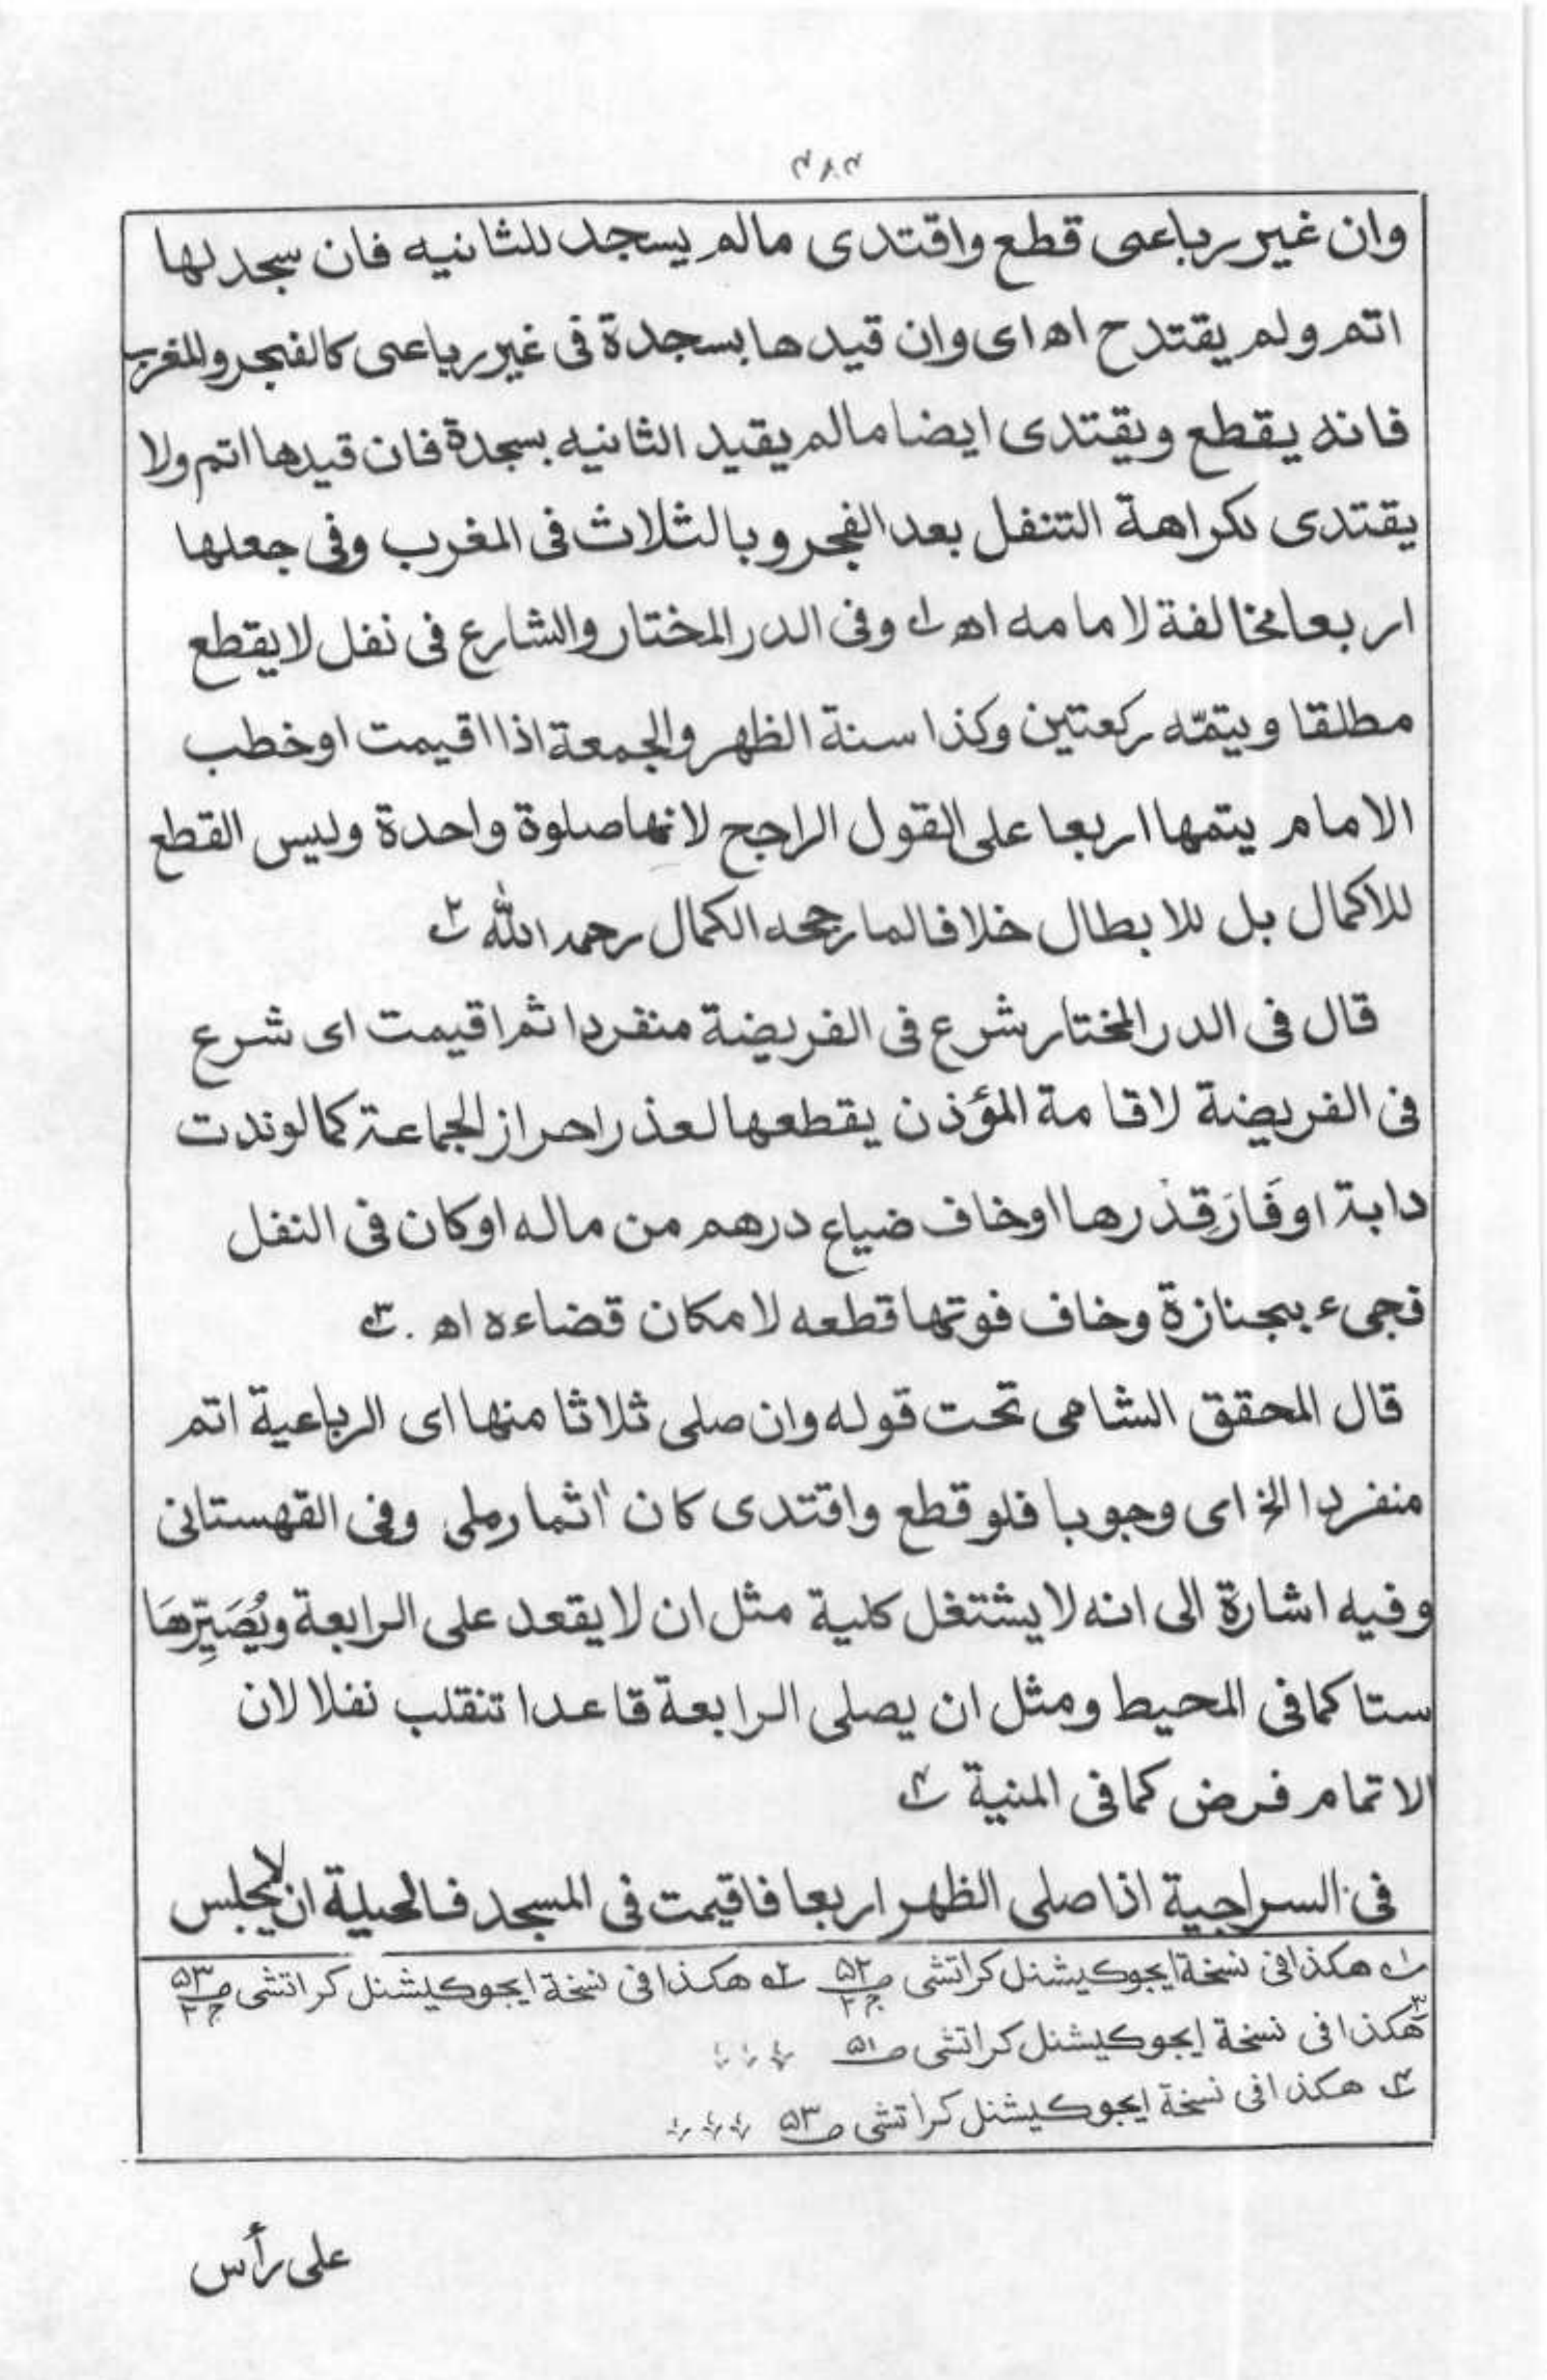 وان غير رباعى قطع واقتدى مالم يسجد للثانيه فان سجد لها
اتم ولم يقتد ح اھ اى وان قيدها بسجدة فى غير رباعى كالفجر والمغرب
فانه يقطع ويقتدى ايضا مالم يقيد الثانيه بسجدة فان قيدها اتم ولا
يقتدى لكراهة التنفل بعد الفجر وبالثلاث فى المغرب وفى جعلها
اربعا مخالفة لامامه اھ ؁۱ وفى الدر المختار والشارع فى نفل لا يقطع
مطلقا ويتمّه ركعتين وكذا سنة الظهر والجمعة اذا اقيمت او خطب
الامام يتمها اربعا على القول الراجح لانها صلوة واحدة وليس القطع
للاكمال بل للابطال خلافا لما رجحه الكمال رحمه الله ؁۲
قال فى الدر المختار شرع فى الفريضة منفردا ثم اقيمت اى شرع
فى الفريضة لاقامة المؤذن يقطعها لعذر احراز الجماعة كما لو ندت
دابة او فَارَ قِدْرها او خاف ضياع درهم من ماله او كان فى النفل
فجىء بجنازة وخاف فوتها قطعه لامكان قضاءه اھ . ؁۳
قال المحقق الشامى تحت قوله وان صلى ثلاثا منها اى الرباعية اتم
منفردا الخ اى وجوبا فلو قطع واقتدى كان اثما رملى وفى القهستانى
وفيه اشارة الى انه لا يشتغل كلية مثل ان لا يقعد على الرابعة ويُصَيِّرهَا
ستا كما فى المحيط ومثل ان يصلى الرابعة قاعدا تنقلب نفلا لان
الاتمام فرض كما فى المنية ؁۴
فى السراجية اذا صلى الظهر اربعا فاقيمت فى المسجد فالحيلة ان لا يجلس
؁۱ هكذا فى نسخة ايجوكيشنل كراتشى ص ۵۲ ج ۲ ؁۲ هكذا فى نسخة ايجوكيشنل كراتشى ص ۵۳ ج ۲
؁۳ هكذا فى نسخة ايجوكيشنل كراتشى ص ۵۱
؁۴ هكذا فى نسخة ايجوكيشنل كراتشى ص ۵۳
على رأس